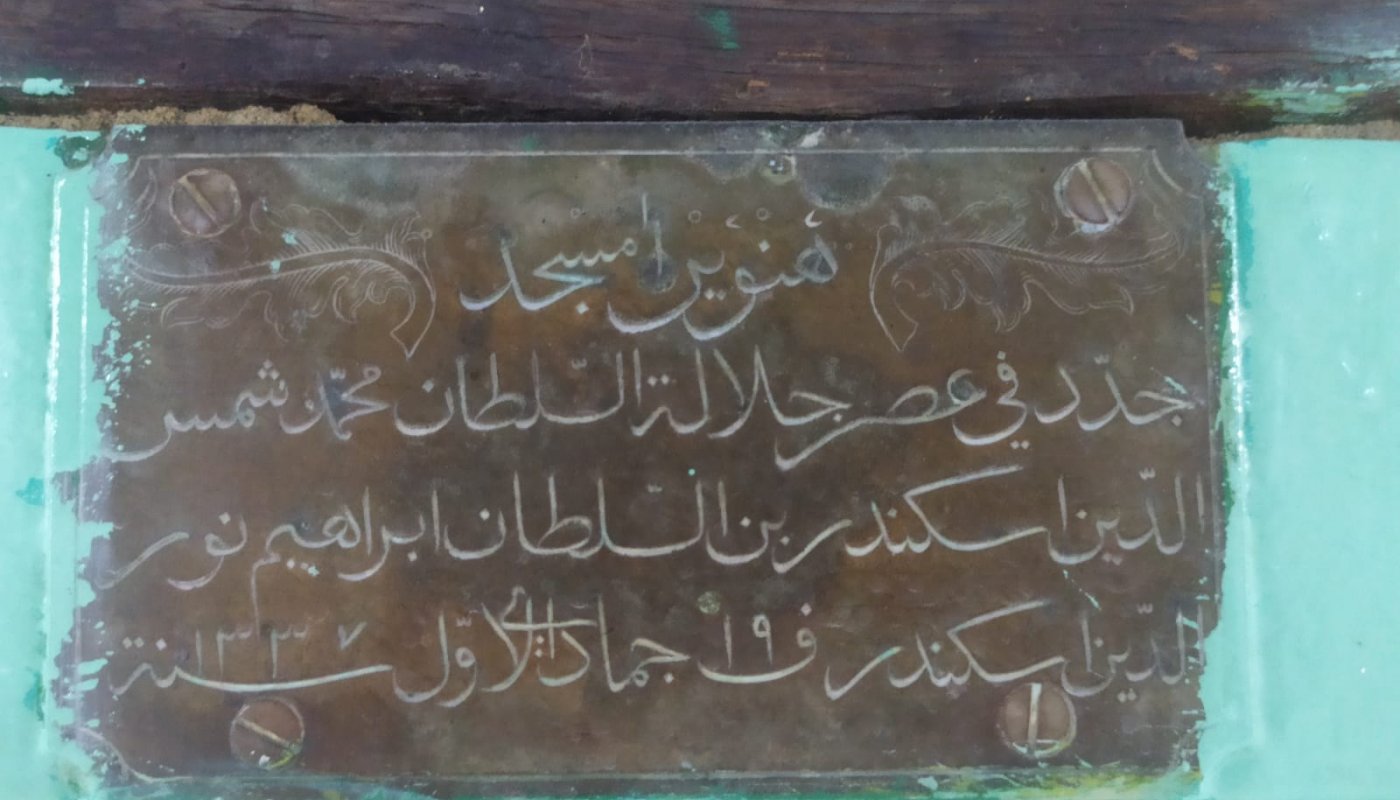 هنويرا مسجد
جدّد في عصر جلالة السّلطان محمّد شمس
الدّين اسكندر بن السّلطان ابراهيم نور
الدّين اسكندر ف ١٩ جمادى الاوّل سنة ١٣٣٧